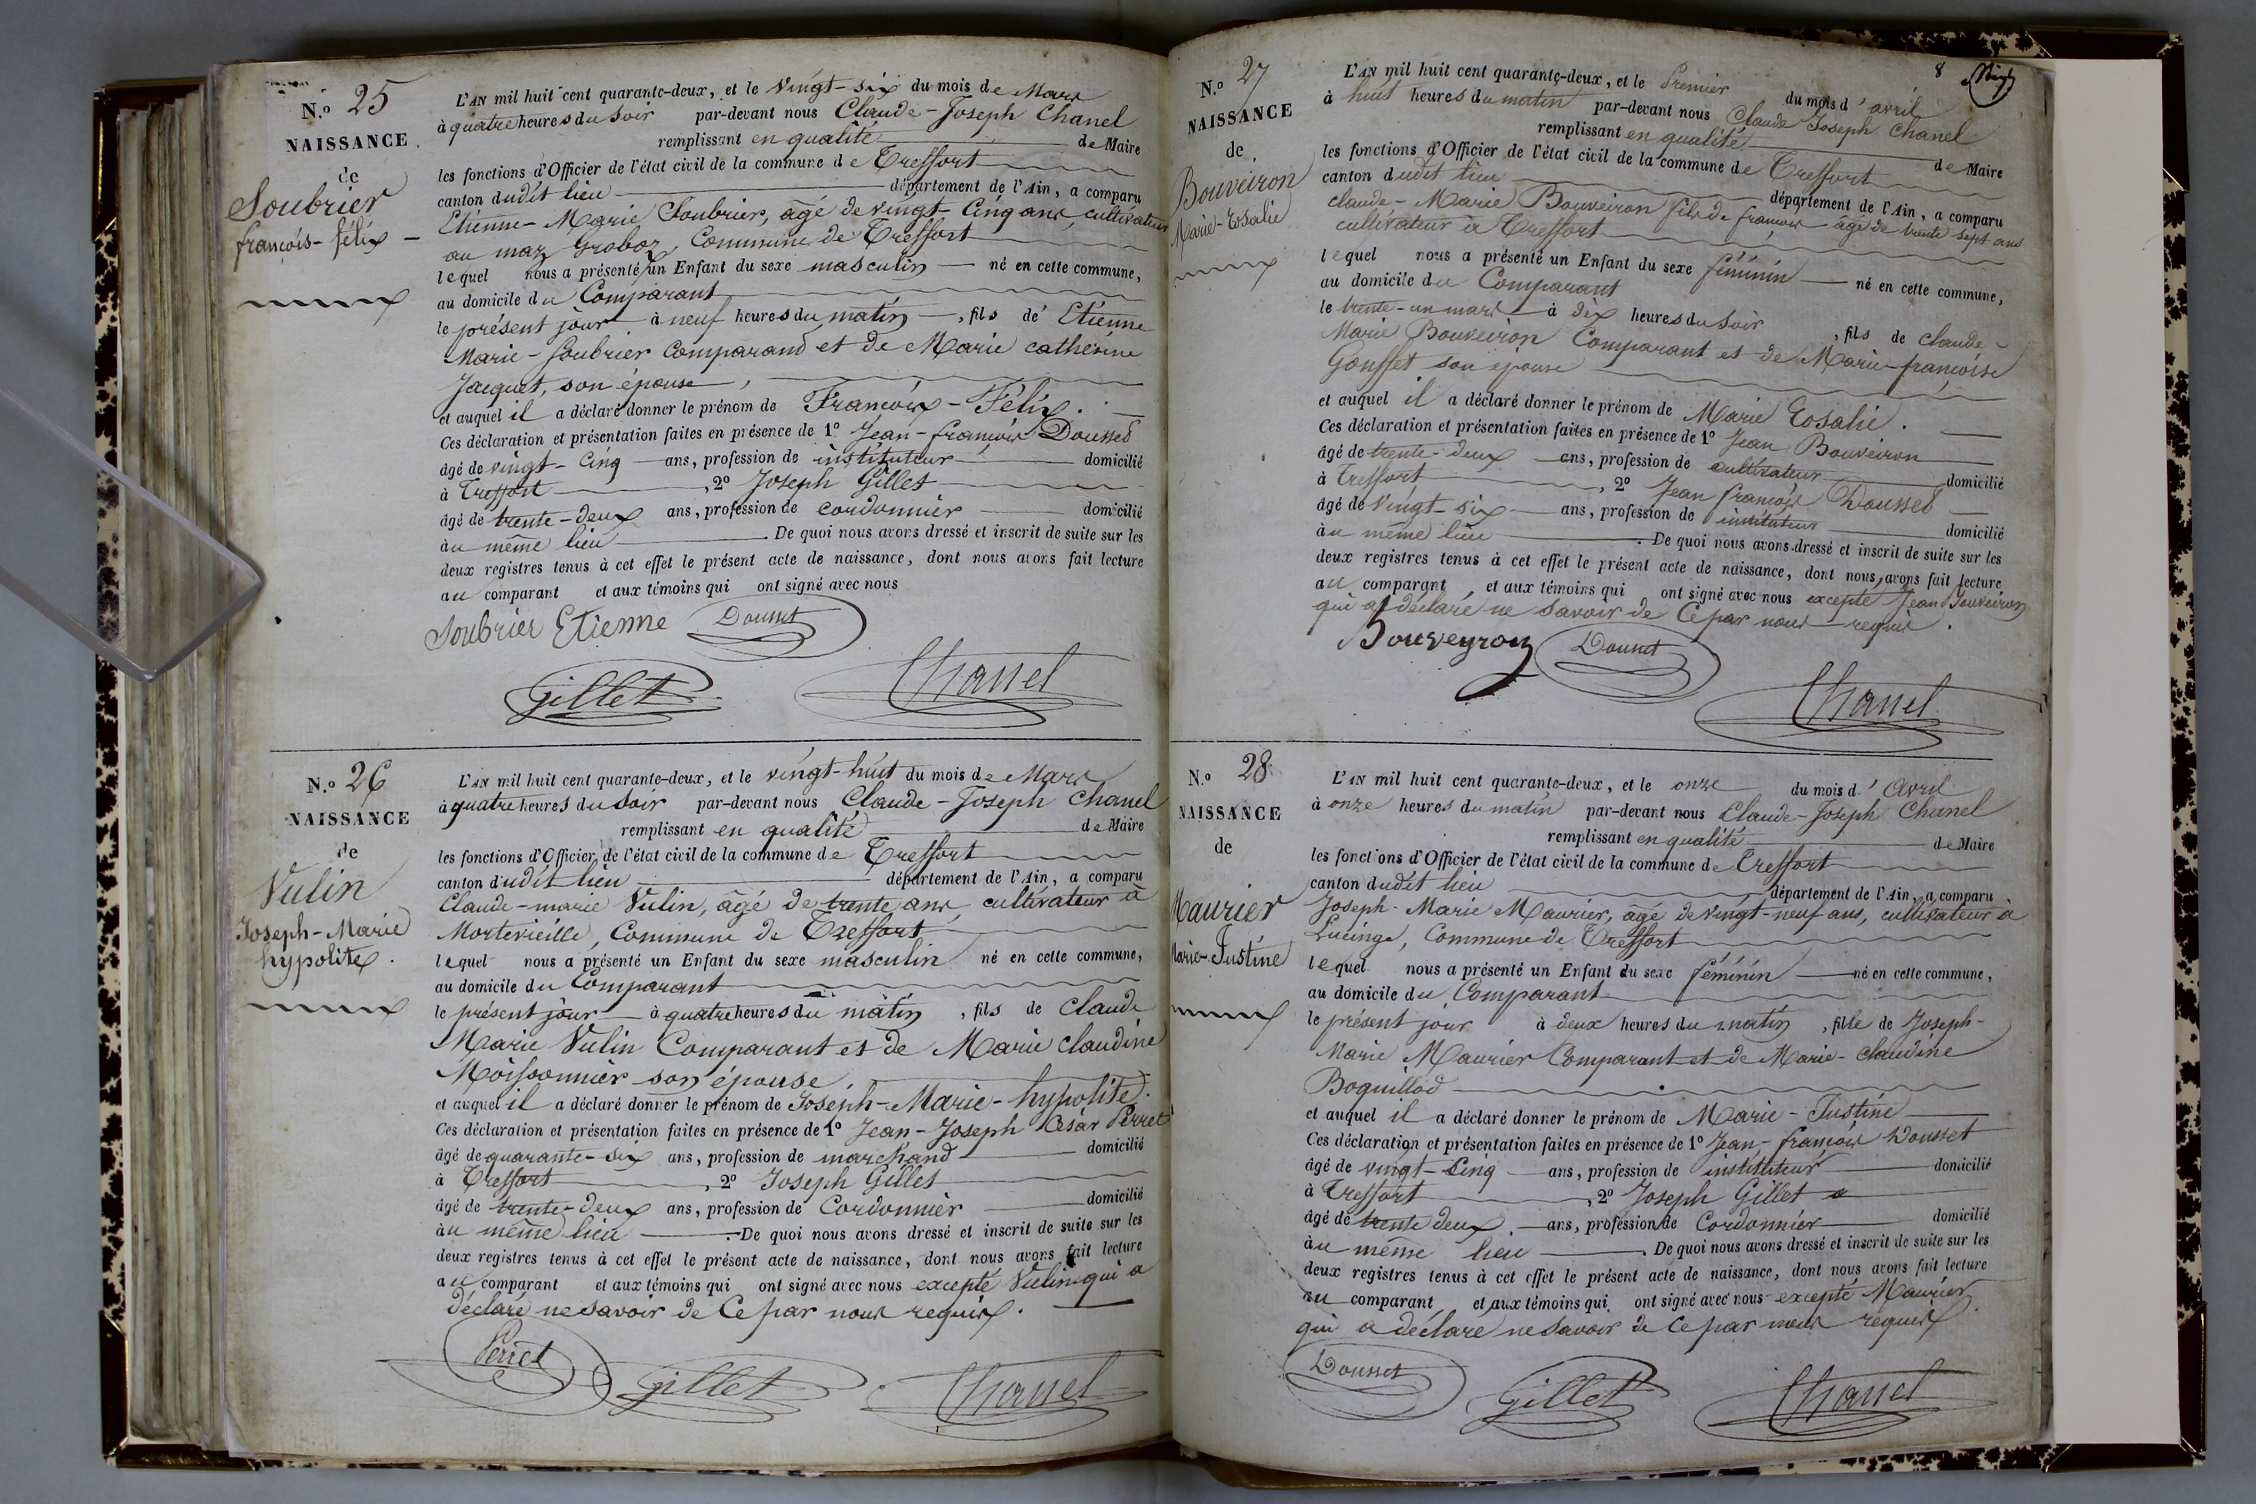 N.o 25
NAISSANCE
de
Soubrier
françois-félix
L'AN mil huit cent quarante-deux, et le vingt-six du mois de Mars
à quatre heures du soir par-devant nous Claude-Joseph Chanel
remplissant en qualité de Maire
les fonctions d'Officier de l'état civil de la commune de Treffort
canton dudit lieu département de l'Ain, a comparu
Etienne-Marie Soubrier, âgé de vingt-cinq ans, cultivateur
au maz Groboz, Commune de Treffort
lequel nous a présenté un Enfant du sexe masculin né en cette commune,
au domicile du Comparant
le présent jour à neuf heures du matin, fils de Etienne
Marie-Soubrier Comparand et de Marie cathérine
Jacquet, son épouse,
et auquel il a déclaré donner le prénom de François-Félix.
Ces déclaration et présentation faites en présence de 1o Jean-françois Dousset
âgé de vingt-cinq ans, profession de instituteur domicilié
à Treffort, 2o Joseph Gillet
âgé de trente-deux ans, profession de cordonnier domicilié
au même lieu. De quoi nous avons dressé et inscrit de suite sur les
deux registres tenus à cet effet le présent acte de naissance, dont nous avons fait lecture
au comparant et aux témoins qui ont signé avec nous
Soubrier Etienne Dousset
Gillet Chanel
N.o 26
NAISSANCE
de
Vulin
Joseph-Marie
hypolite.
L'AN mil huit cent quarante-deux, et le vingt-huit du mois de Mars
à quatre heures du soir par-devant nous Claude-Joseph Chanel
remplissant en qualité de Maire
les fonctions d'Officier de l'état civil de la commune de Treffort
canton dudit lieu département de l'Ain, a comparu
Claude-marie Vulin, âgé de trente ans cultivateur à
Mortevieille, Commune de Treffort
lequel nous a présenté un Enfant du sexe masculin né en cette commune,
au domicile du Comparant
le présent jour à quatre heures du matin, fils de Claude
Marie Vulin Comparant et de Marie claudine
Moissonnier son épouse
et auquel il a déclaré donner le prénom de Joseph-Marie-hypolite.
Ces déclaration et présentation faites en présence de 1o Jean-Joseph César Perret
âgé de quarante-six ans, profession de marchand domicilié
à Treffort, 2o Joseph Gillet
âgé de trente-deux ans, profession de Cordonnier domicilié
au même lieu. De quoi nous avons dressé et inscrit de suite sur les
deux registres tenus à cet effet le présent acte de naissance, dont nous avons fait lecture
au comparant et aux témoins qui ont signé avec nous excepté Vulin qui a
déclaré ne savoir de Ce par nous requis.
Perret Gillet Chanel
8
N.o 27
NAISSANCE
de
Bouveiron
Marie-Rosalie
L'AN mil huit cent quarante-deux, et le Premier du mois d'avril
à huit heures du matin par-devant nous Claude Joseph Chanel
remplissant en qualité de Maire
les fonctions d'Officier de l'état civil de la commune de Treffort
canton dudit lieu département de l'Ain, a comparu
claude-Marie Bouveiron fils de françois âgé de trente sept ans
cultivateur à Treffort
lequel nous a présenté un Enfant du sexe féminin né en cette commune,
au domicile du Comparant
le trente-un mars à dix heures du soir, fils de claude-
Marie Bouveiron Comparant et de Marie-françoise
Gouffet son épouse
et auquel il a déclaré donner le prénom de Marie Rosalie.
Ces déclaration et présentation faites en présence de 1o Jean Bouveiron
âgé de trente-deux ans, profession de cultivateur domicilié
à Treffort, 2o Jean françois Dousset
âgé de vingt-six ans, profession de instituteur domicilié
au même lieu. De quoi nous avons dressé et inscrit de suite sur les
deux registres tenus à cet effet le présent acte de naissance, dont nous avons fait lecture
au comparant, et aux témoins qui ont signé avec nous excepté Jean Bouveiron
qui a déclaré ne savoir de Ce par nous requis.
Bouveyron Dousset
Chanel
N.o 28
NAISSANCE
de
Maurier
Marie-Justine
L'AN mil huit cent quarante-deux, et le onze du mois d'Avril
à onze heures du matin par-devant nous Claude-Joseph Chanel
remplissant en qualité de Maire
les fonctions d'Officier de l'état civil de la commune de Treffort
canton dudit lieu département de l'Ain, a comparu
Joseph-Marie Maurier, âgé de vingt-neuf ans, cultivateur à
Lucinge, Commune de Treffort
lequel nous a présenté un Enfant du sexe féminin né en cette commune,
au domicile du Comparant
le présent jour à deux heures du matin, fille de Joseph-
Marie Maurier Comparant et de Marie-claudine
Boguillod
et auquel il a déclaré donner le prénom de Marie-Justine
Ces déclaration et présentation faites en présence de 1o Jean-françois Dousset
âgé de vingt-cinq ans, profession de instituteur domicilié
à Treffort, 2o Joseph Gillet
âgé de trente deux ans, profession de Cordonnier domicilié
au même lieu. De quoi nous avons dressé et inscrit de suite sur les
deux registres tenus à cet effet le présent acte de naissance, dont nous avons fait lecture
au comparant et aux témoins qui ont signé avec nous excepté Maurier
qui a déclaré ne savoir de Ce par nous requis
Dousset Gillet Chanel